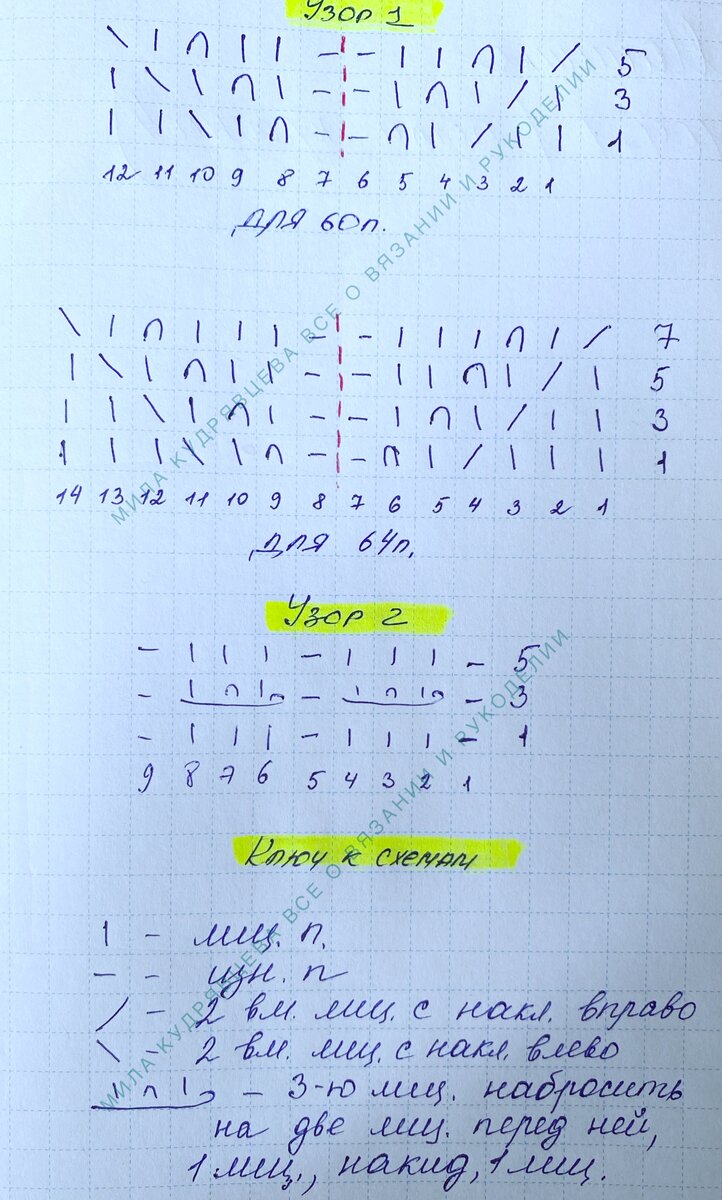 Узор 1
\ | ∩ | | - - | | ∩ | / 5
| \ | ∩ | - - | ∩ | / | 3
| | \ | ∩ - - ∩ | / | | 1
12 11 10 9 8 7 6 5 4 3 2 1
для 60п.
\ | ∩ | | | - - | | | ∩ | / 7
| \ | ∩ | | - - | | ∩ | / | 5
| | \ | ∩ | - - | ∩ | / | | 3
| | | \ | ∩ - - ∩ | / | | | 1
14 13 12 11 10 9 8 7 6 5 4 3 2 1
для 64п.
Узор 2
- | | | - | | | - 5
- | ∩ | - | ∩ | - 3
- | | | - | | | - 1
9 8 7 6 5 4 3 2 1
Ключ к схемам
| - лиц. п.
— - изн. п
/ - 2 вм. лиц. с накл. вправо
\ - 2 вм. лиц. с накл. влево
| ∩ | - 3-ю лиц. набросить
на две лиц. перед ней,
1 лиц., накид, 1 лиц.
МИЛА КУДРЯВЦЕВА ВСЕ О ВЯЗАНИИ И РУКОДЕЛИИ
МИЛА КУДРЯВЦЕВА ВСЕ О ВЯЗАНИИ И РУКОДЕЛИИ